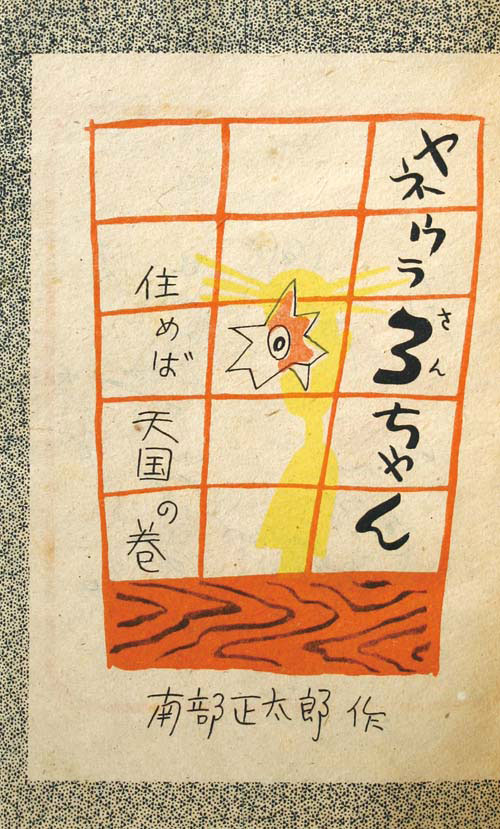 ヤネウラ3ちゃん
さん
住めば天国の巻
南部正太郎 作